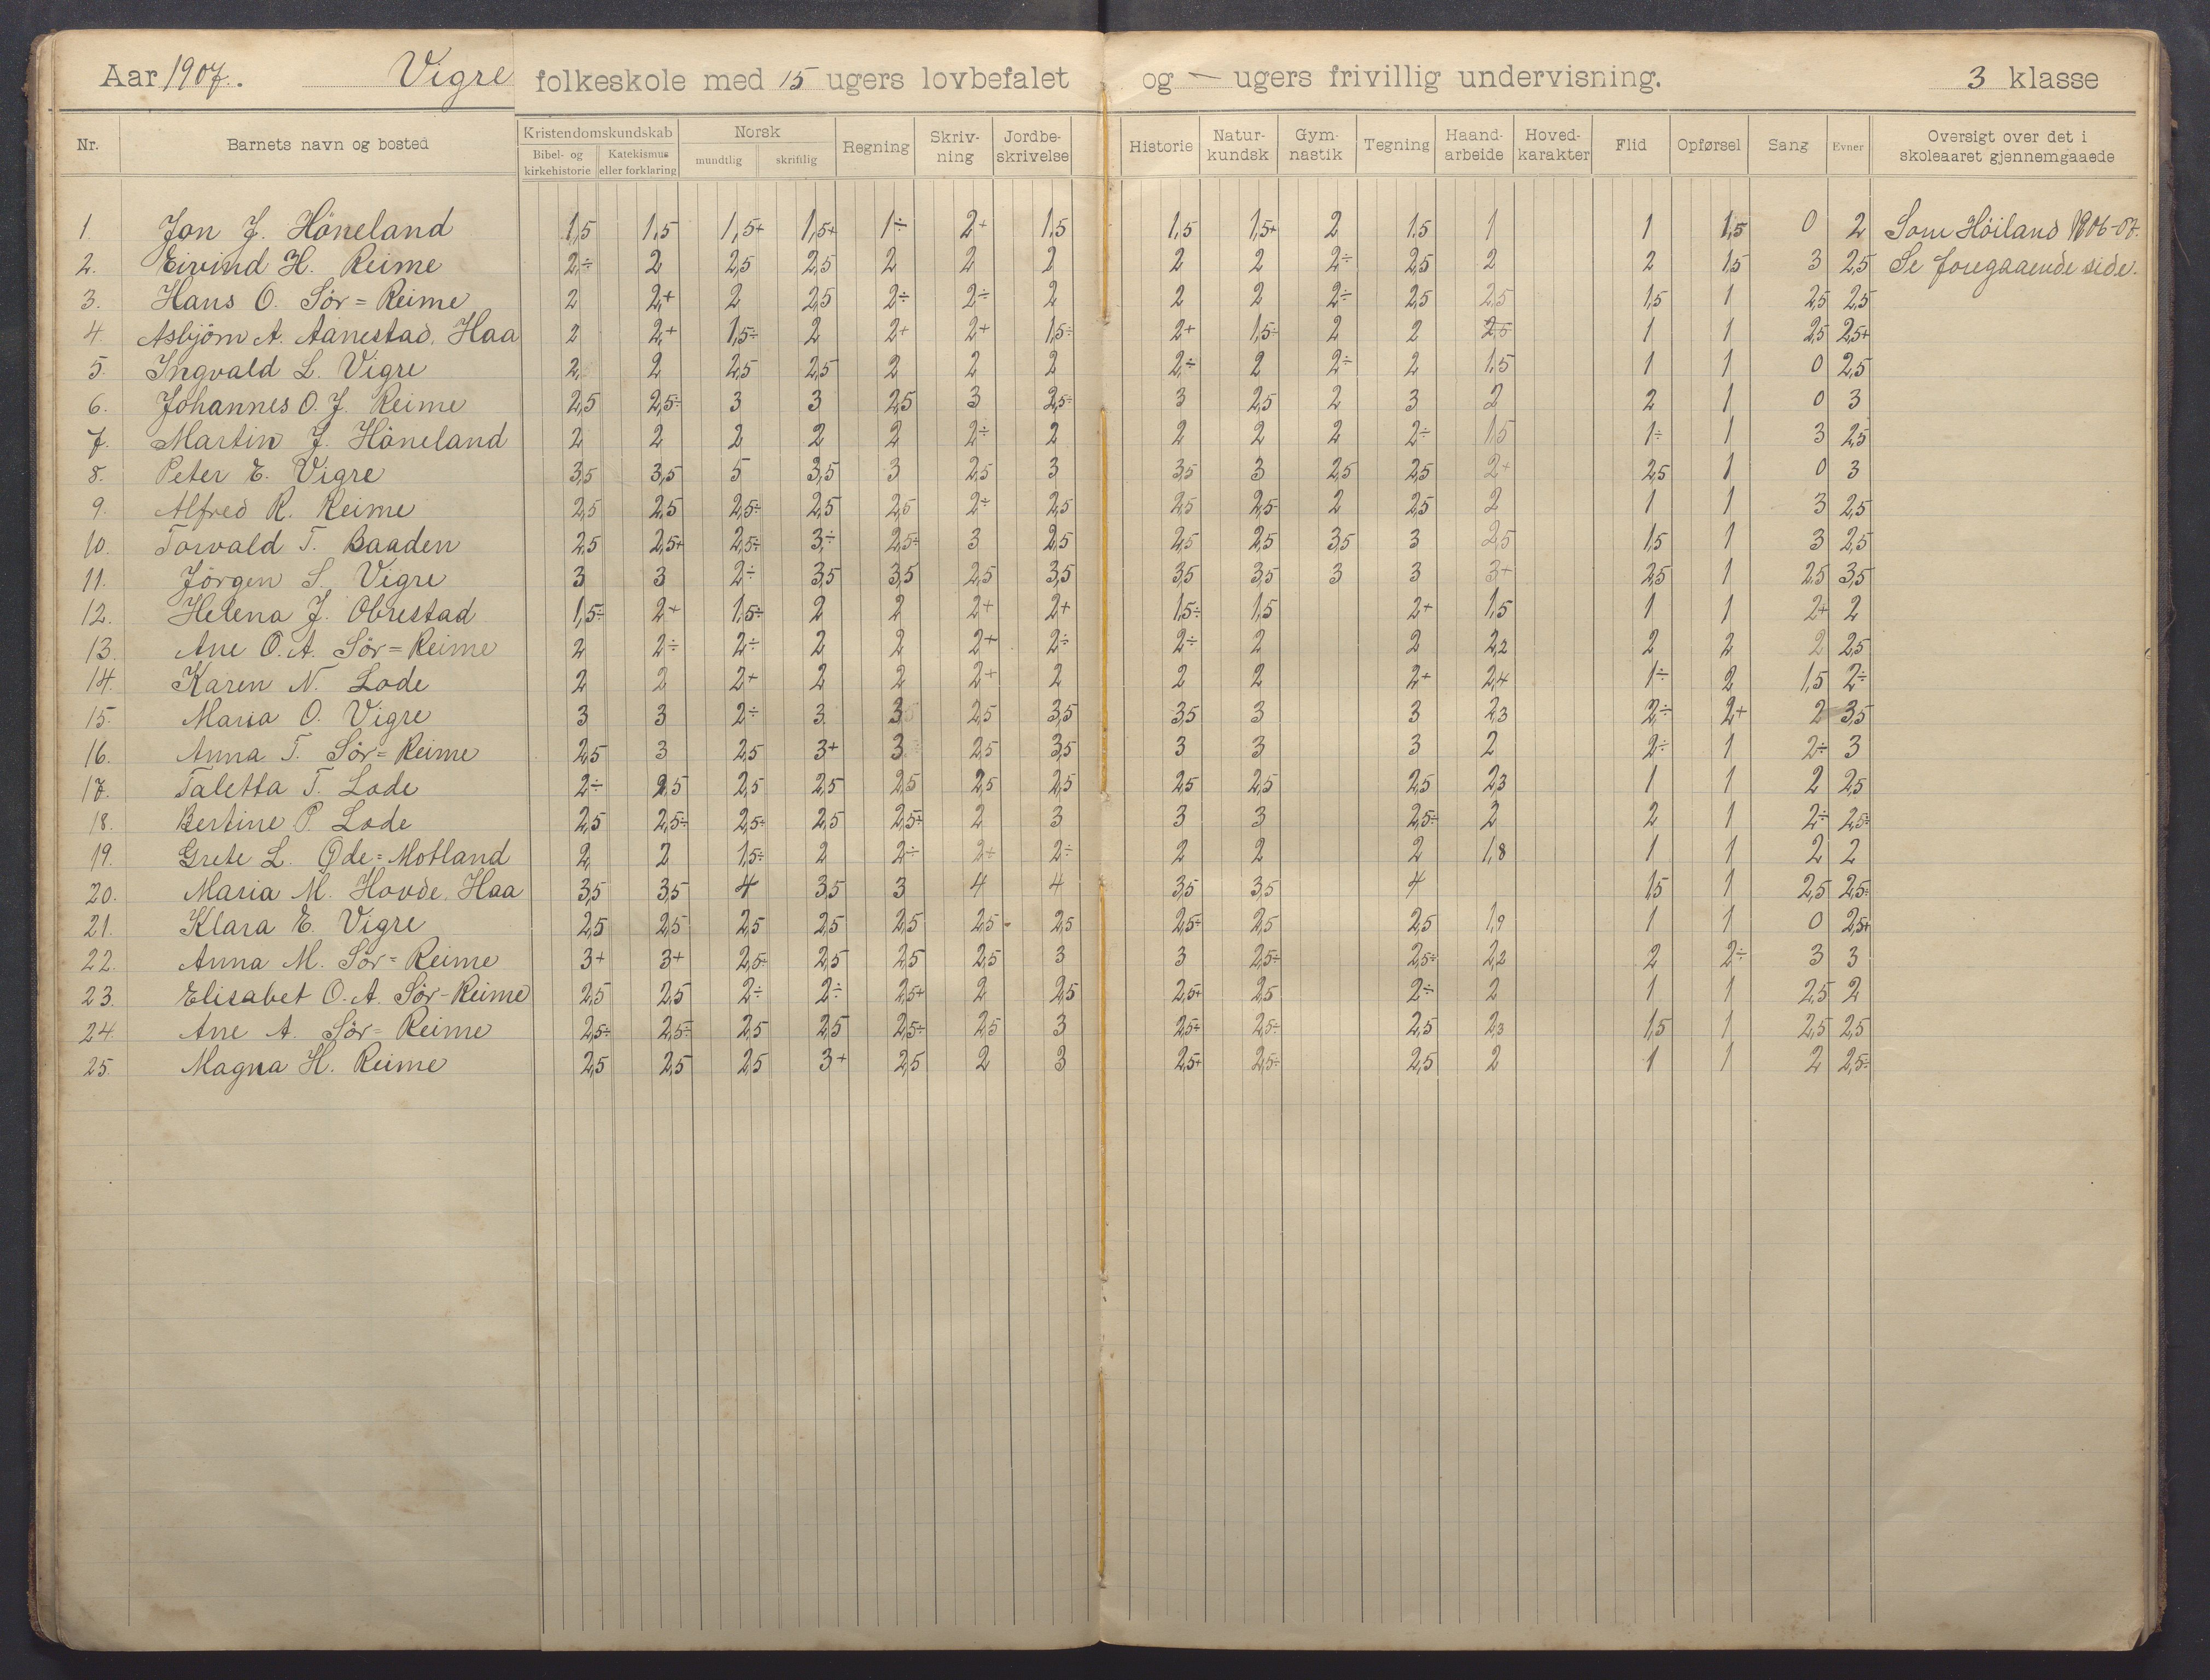 Aar 1907. Vigre folkeskole med 15 ugers lovbefalet og — ugers frivillig undervisning. 3 klasse
Nr. Barnets navn og bosted Kristendomskundskab Norsk Regning Skriv-ning Jordbe-skrivelse Historie Natur-kundsk Gym-nastik Tegning Haand-arbeide Hoved-karakter Flid Opførsel Sang Evner Oversigt over det i skoleaaret gjennemgaaede
Bibel- og kirkehistorie Katekismus eller forklaring mundtlig skriftlig
1. Jon J. Höneland 1,5 1,5 1,5+ 1,5+ 1÷ 2+ 1,5 1,5 1,5+ 2 1,5 1 1 1,5 0 2 Som Höiland 1906-07.
2. Eivind H. Reime 2÷ 2 2,5 2,5 2 2 2 2 2 2÷ 2,5 2 2 1,5 3 2,5 Se foregaaende side.
3. Hans O. Sör=Reime 2 2+ 2 2,5 2÷ 2÷ 2 2 2 2÷ 2,5 2,5 1,5 1 2,5 2,5
4. Asbjörn A. Aanestad, Haa 2 2+ 1,5÷ 2 2+ 2+ 1,5÷ 2+ 1,5÷ 2 2 2,5 1 1 2,5 2,5+
5. Ingvald L. Vigre 2 2 2,5 2,5 2 2 2 2÷ 2 2÷ 2 1,5 1 1 0 2,5
6. Johannes O. J. Reime 2,5 2,5÷ 3 3 2,5 3 2,5÷ 3 2,5 2 3 2 2 1 0 3
7. Martin J. Höneland 2 2 2 2 2 2÷ 2 2 2 2 2÷ 1,5 1÷ 1 3 2,5
8. Peter E. Vigre 3,5 3,5 5 3,5 3 2,5 3 3,5 3 2,5 2,5 2+ 2,5 1 0 3
9. Alfred R. Reime 2,5 2,5 2,5÷ 2,5 2,5 2÷ 2,5 2,5 2,5 2 2,5 2 1 1 3 2,5
10. Torvald T. Baaden 2,5 2,5+ 2,5÷ 3÷ 2,5÷ 3 2,5 2,5 2,5 3,5 3 2,5 1,5 1 3 2,5
11. Jörgen S. Vigre 3 3 2÷ 3,5 3,5 2,5 3,5 3,5 3,5 3 3 3+ 2,5 1 2,5 3,5
12. Helena J. Obrestad 1,5÷ 2+ 1,5÷ 2 2 2+ 2+ 1,5÷ 1,5 2+ 1,5 1 1 2+ 2
13. Ane O. A. Sör=Reime 2 2÷ 2÷ 2 2 2+ 2÷ 2÷ 2 2 2,2 2 2 2 2,5
14. Karen N. Lode 2 2 2+ 2 2 2+ 2 2 2 2+ 2,4 1÷ 2 1,5 2÷
15. Maria O. Vigre 3 3 2÷ 3 3 2,5 3,5 3,5 3 3 2,3 2÷ 2+ 2 3,5
16. Anna T. Sör=Reime 2,5 3 2,5 3+ 3 2,5 3,5 3 3 3 2 2÷ 1 2÷ 3
17. Taletta T. Lode 2÷ 2,5 2,5 2,5 2,5 2,5 2,5 2,5 2,5 2,5 2,3 1 1 2 2,5
18. Bertine P. Lode 2,5 2,5÷ 2,5÷ 2,5 2,5+ 2 3 3 3 2,5÷ 2 2 1 2÷ 2,5÷
19. Grete L. Øde=Motland 2 2 1,5÷ 2 2÷ 2÷ 2÷ 2 2 2 1,8 1 1 2 2
20. Maria M. Hovde, Haa 3,5 3,5 4 3,5 3 4 4 3,5 3,5 4 1,5 1 2,5 2,5÷
21. Klara E. Vigre 2,5 2,5 2,5 2,5 2,5 2,5 2,5 2,5+ 2,5 2,5 1,9 1 1 0 2,5+
22. Anna M. Sör=Reime 3+ 3+ 2,5÷ 2,5 2,5 2,5 3 3 2,5÷ 2,5÷ 2,2 2 2÷ 3 3
23. Elisabet O. A. Sör-Reime 2,5 2,5 2÷ 2÷ 2,5+ 2 2,5 2,5+ 2,5 2÷ 2 1 1 2,5 2
24. Ane A. Sör=Reime 2,5÷ 2,5÷ 2,5 2,5 2,5÷ 2,5 3 2,5÷ 2,5÷ 2,5 2,3 1,5 1 2,5 2,5
25. Magna H. Reime 2,5 2,5 2,5 3+ 2,5 2 3 2,5+ 2,5÷ 2,5 2 1 1 2 2,5÷